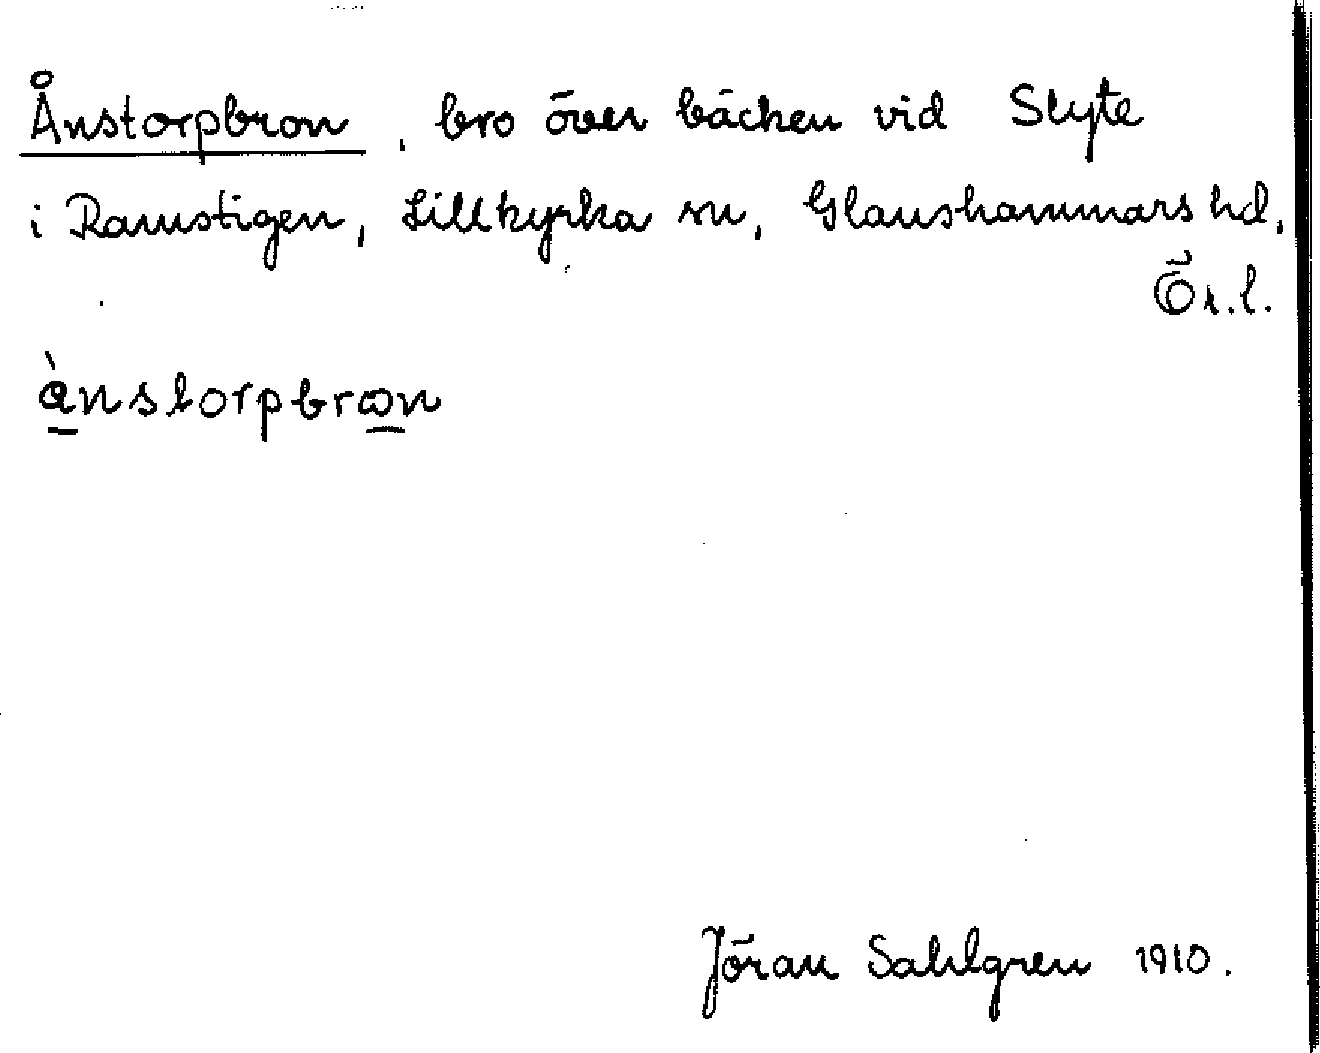 Ånstorpbron, bro över bäcken vid Slyte
i Ramstigen, Lillkyrka sn, Glanshammars hd,
Ör. l.
ànstorpbron
Jöran Sahlgren 1910.